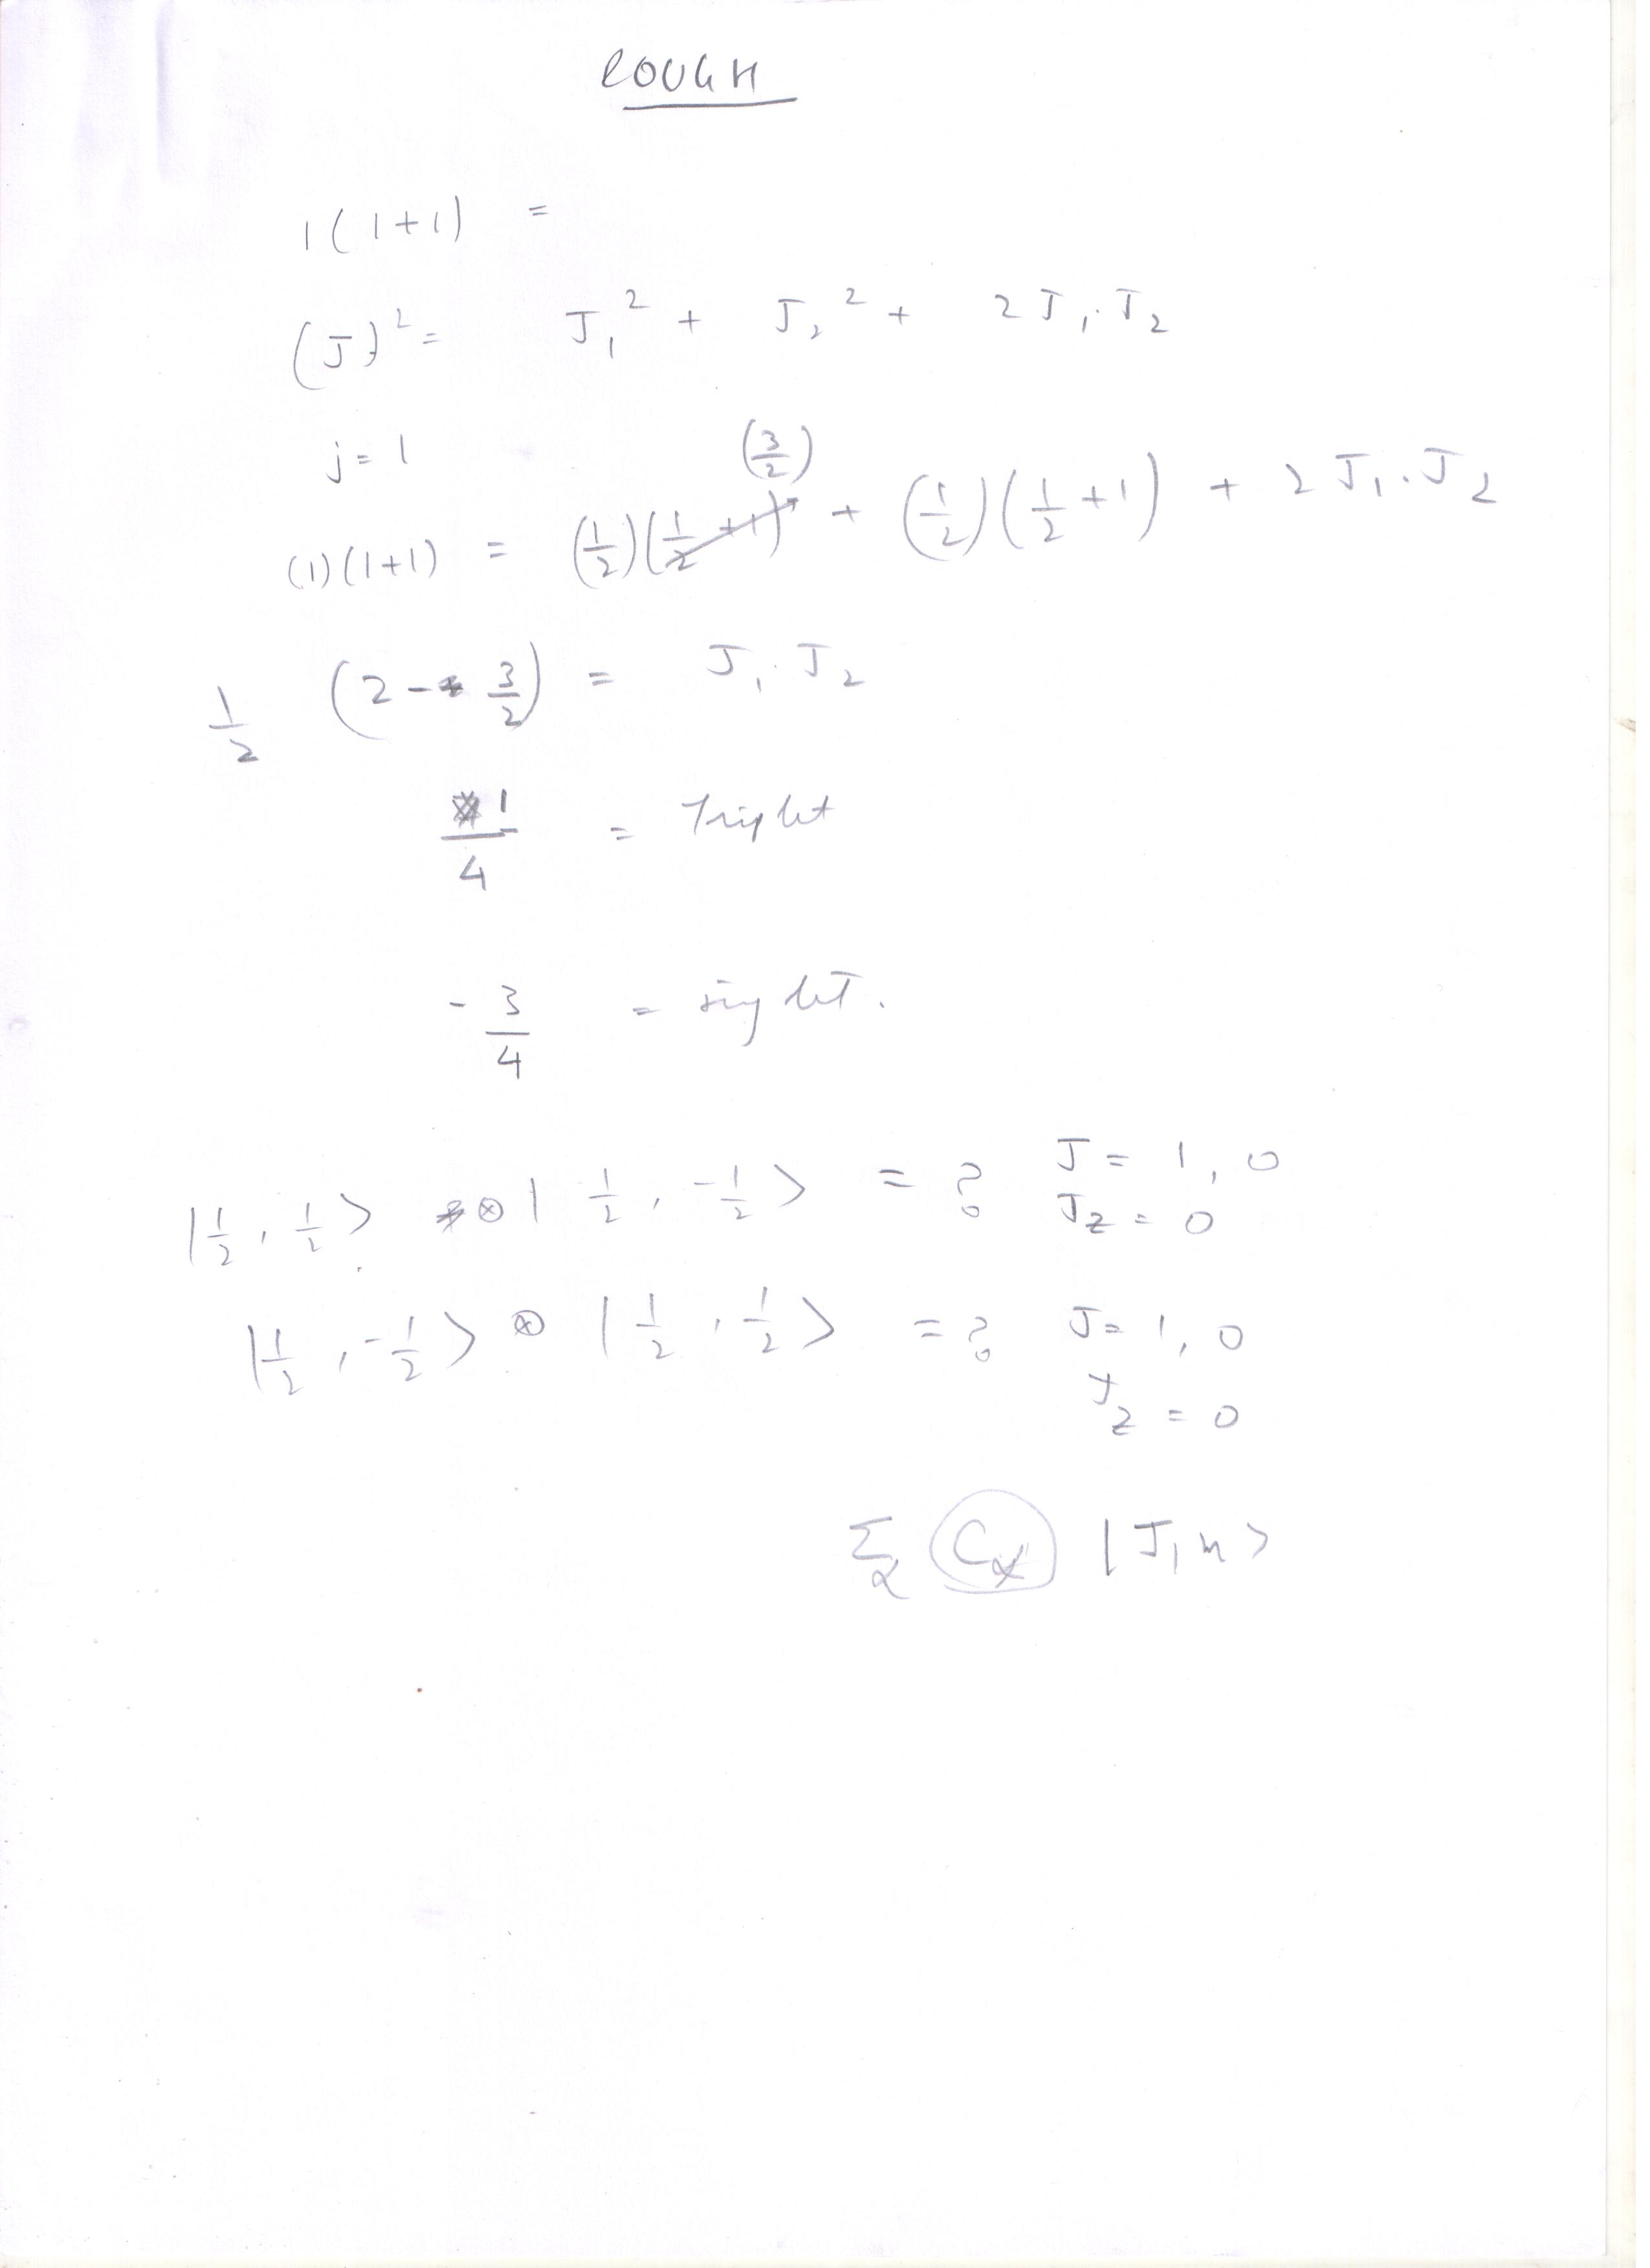 ROUGH
1(1+1) =
(J)² = J₁² + J₂² + 2 J₁.J₂
j = 1
(3/2)
(1)(1+1) = (1/2)(1/2+1) + (1/2)(1/2+1) + 2 J₁.J₂
1/2 (2 - 3/2) = J₁.J₂
1/4 = Triplet
-3/4 = singlet.
|1/2, 1/2> ⊗ |1/2, -1/2> = ? J = 1, 0
J_z = 0
|1/2, -1/2> ⊗ |1/2, 1/2> = ? J = 1, 0
J_z = 0
Σ_α C_α |J, m>